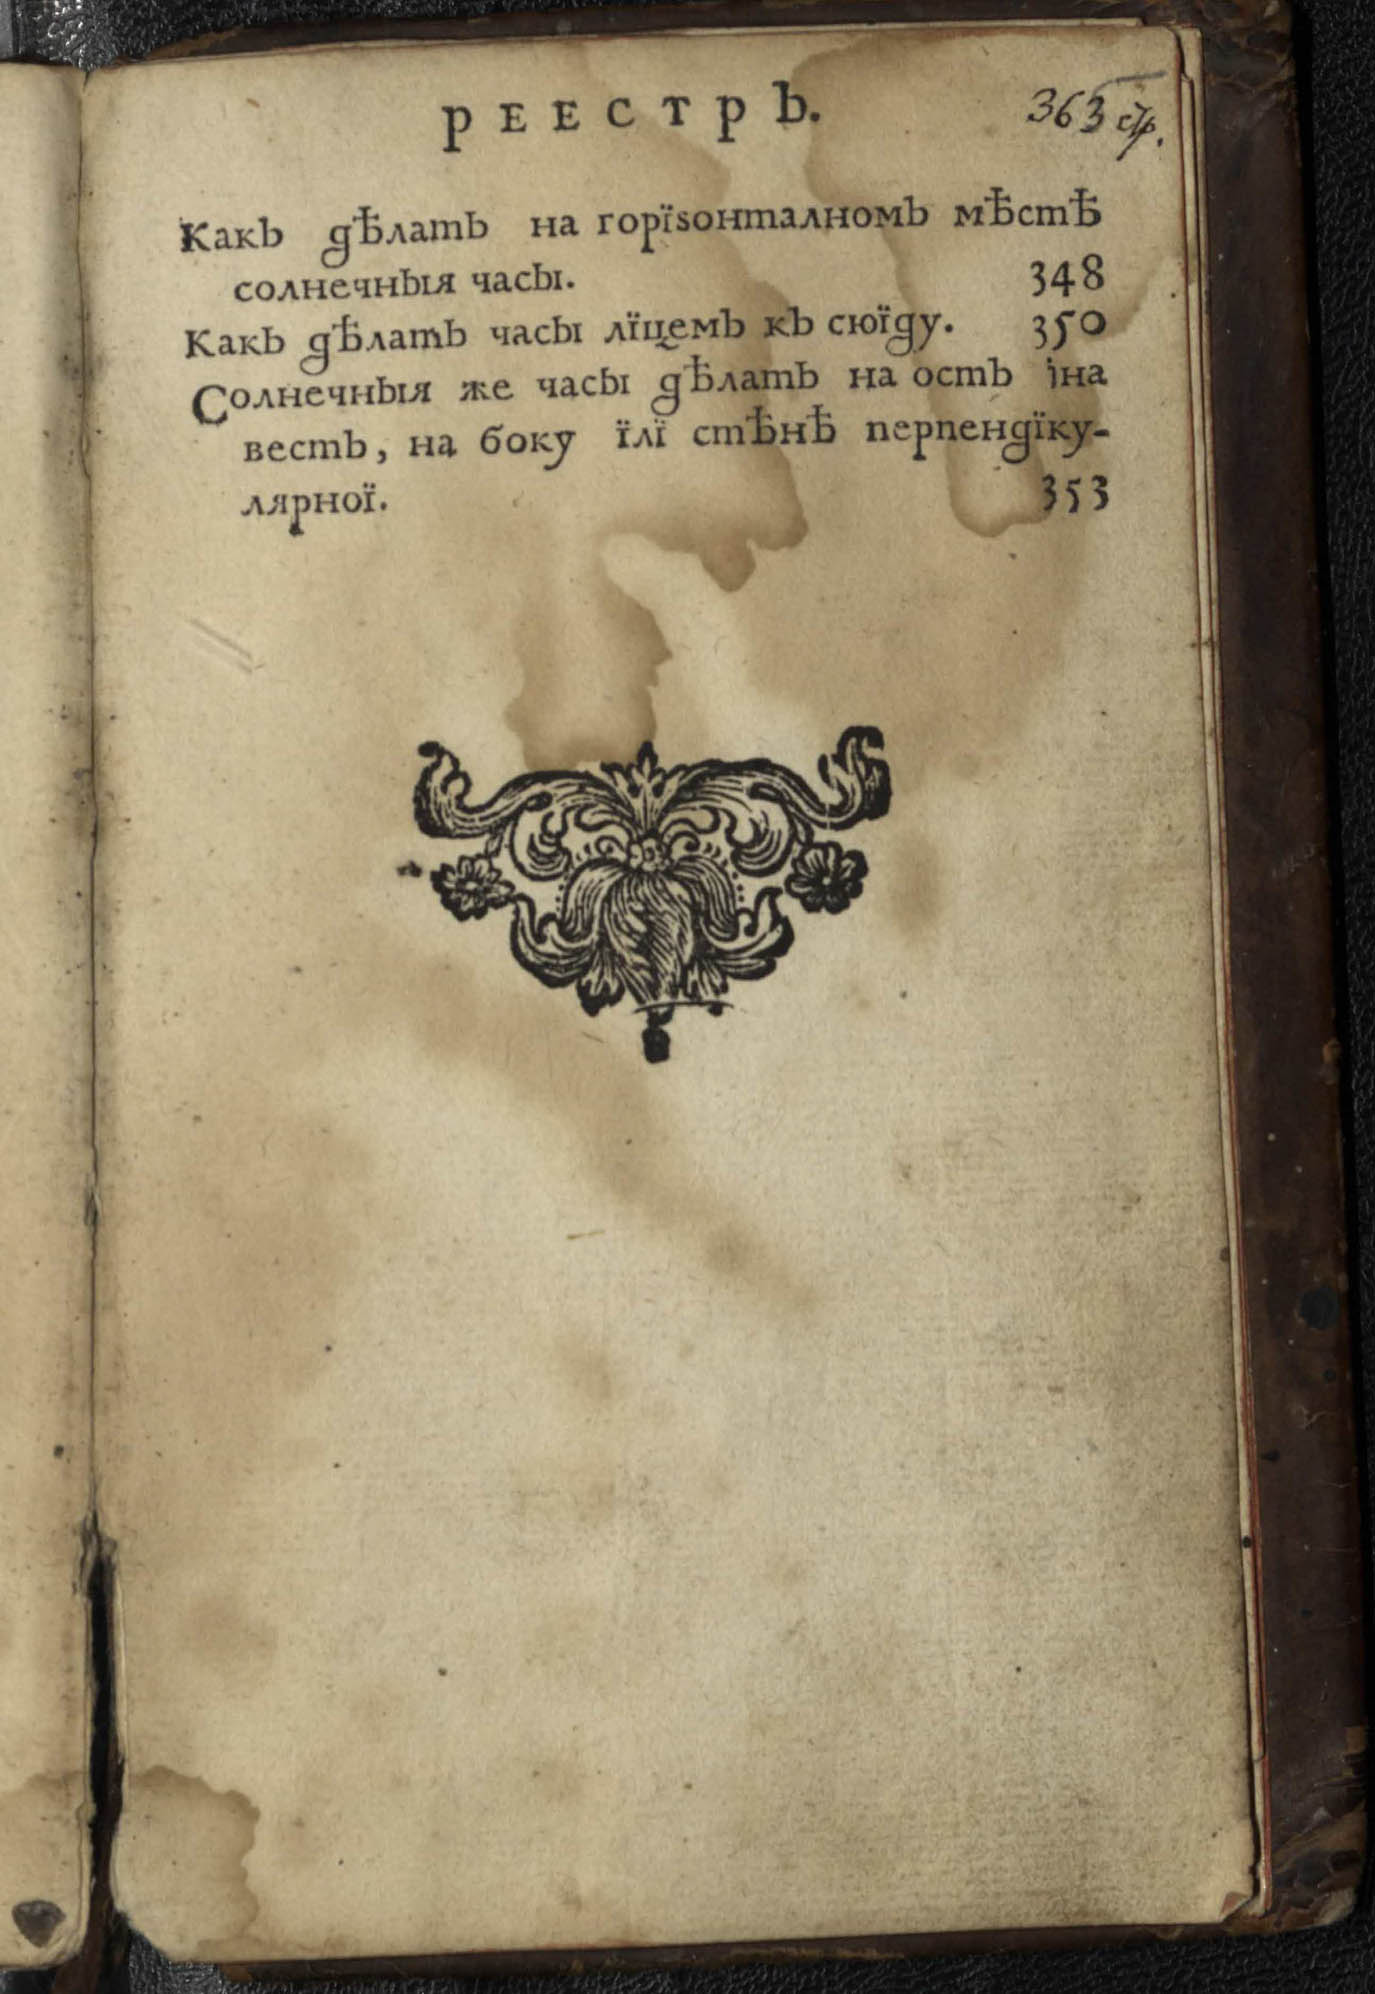 РЕЕСТРЪ.
363 стр.
Какъ дѣлать на горїзонталномъ мѣстѣ
солнечныя часы. 348
Какъ дѣлать часы лїцемъ къ сюїду. 350
Солнечныя же часы дѣлать на ость їна
весть, на боку їлї стѣнѣ перпендїку-
лярної. 353